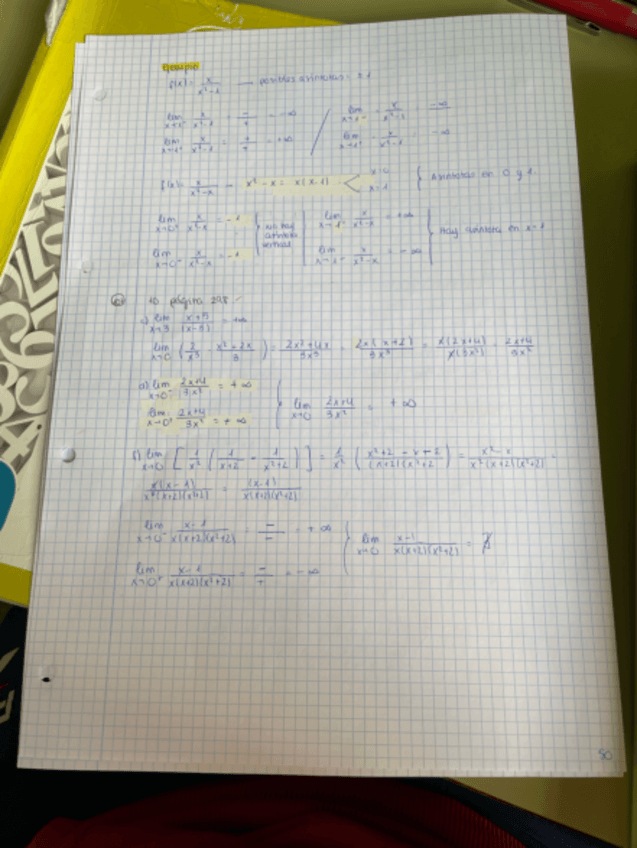 Ejemplo:
f(x) = x/(x²-1) → posibles asíntotas: ±1
lim x→1⁻ x/(x²-1) = -/+ = -∞ / lim x→-1⁻ x/(x²-1) = -∞
lim x→1⁺ x/(x²-1) = +/+ = +∞ lim x→-1⁺ x/(x²-1) = -∞
f(x) = x/(x²-x) → x²-x = x(x-1) < x=0 x=1 { Asíntotas en 0 y 1.
lim x→0⁺ x/(x²-x) = -1 } no hay asíntota vertical | lim x→1⁺ x/(x²-x) = +∞ } Hay asíntota en x=1
lim x→0⁻ x/(x²-x) = -1 lim x→1⁻ x/(x²-x) = -∞
10 página 298
lim x→3 (x+5)/(x-3) = +∞
lim x→0 (2/x³ · (x²+2x)/3) = (2x²+4x)/3x³ = 2x(x+2)/3x³ = x(2x+4)/x(3x²) = (2x+4)/3x²
a) lim x→0⁻ (2x+4)/3x² = +∞ { lim x→0 (2x+4)/3x² = +∞
lim x→0⁺ (2x+4)/3x² = +∞
f) lim x→0 [1/x² (1/(x+2) - 1/(x²+2))] = 1/x² ((x²+2-x-2)/(x+2)(x²+2)) = (x²-x)/(x²(x+2)(x²+2)) =
x(x-1)/(x²(x+2)(x²+2)) = (x-1)/(x(x+2)(x²+2))
lim x→0⁻ (x-1)/(x(x+2)(x²+2)) = -/- = +∞ { lim x→0 (x-1)/(x(x+2)(x²+2)) = ∄
lim x→0⁺ (x-1)/(x(x+2)(x²+2)) = -/+ = -∞
50